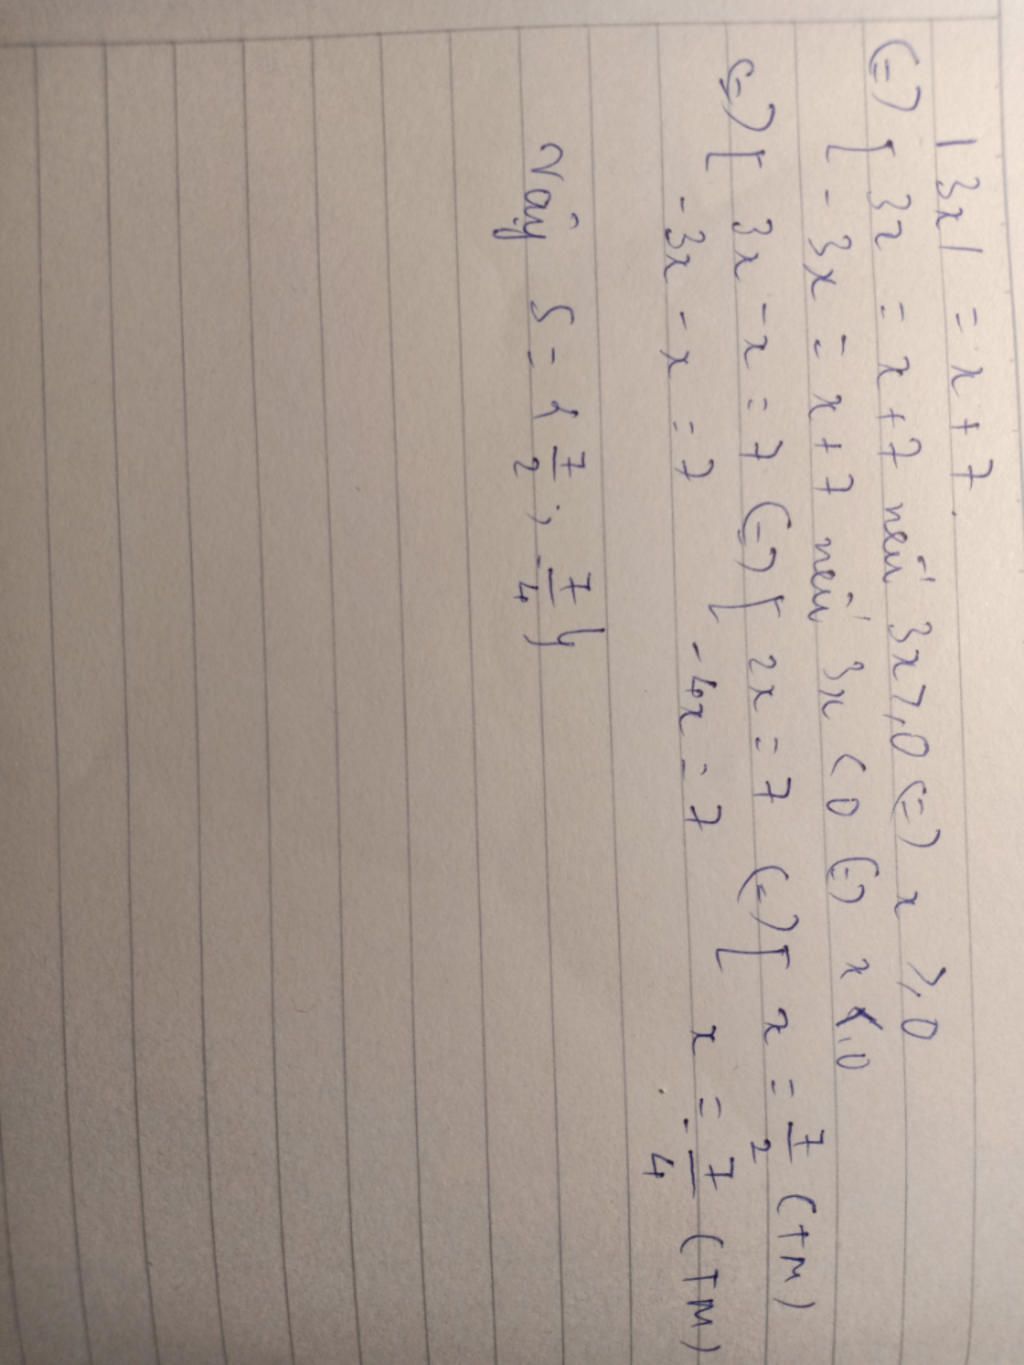 |3x| = x+7.
(=) [ 3x = x+7 nếu 3x >, 0 (=) x >, 0
[ -3x = x+7 nếu 3x < 0 (=) x < 0
(=) [ 3x - x = 7 (=) [ 2x = 7 (=) [ x = 7/2 (TM)
-3x - x = 7 -4x = 7 x = -7/4 (TM)
Vậy S = { 7/2 ; -7/4 }